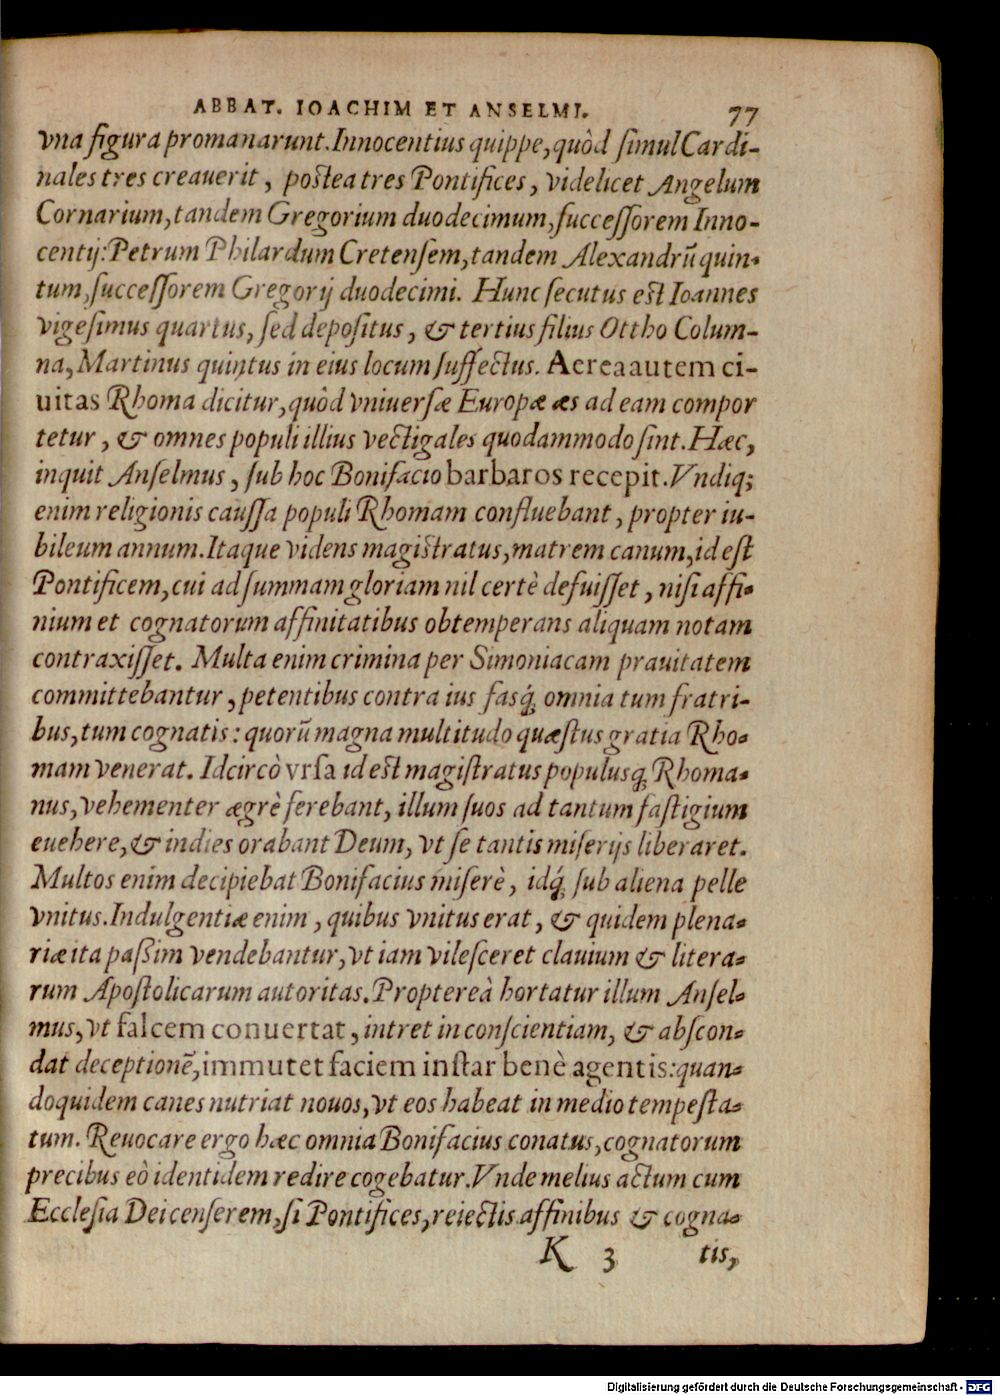 ABBAT. IOACHIM ET ANSELMI. 77
vna figura promanarunt. Innocentius quippe, quòd simul Cardi-
nales tres creauerit, postea tres Pontifices, videlicet Angelum
Cornarium, tandem Gregorium duodecimum, successorem Inno-
centij: Petrum Philardum Cretensem, tandem Alexandrū quin-
tum, successorem Gregorij duodecimi. Hunc secutus est Ioannes
vigesimus quartus, sed depositus, & tertius filius Ottho Colum-
na, Martinus quintus in eius locum suffectus. Aerea autem ci-
uitas Rhoma dicitur, quòd vniuersæ Europæ æs ad eam compor
tetur, & omnes populi illius vectigales quodammodo sint. Hæc,
inquit Anselmus, sub hoc Bonifacio barbaros recepit. Vndiq;
enim religionis caussa populi Rhomam confluebant, propter iu-
bileum annum. Itaque videns magistratus, matrem canum, id est
Pontificem, cui ad summam gloriam nil certè defuisset, nisi affi-
nium et cognatorum affinitatibus obtemperans aliquam notam
contraxisset. Multa enim crimina per Simoniacam prauitatem
committebantur, petentibus contra ius fasq́; omnia tum fratri-
bus, tum cognatis: quorū magna multitudo quæstus gratia Rho-
mam venerat. Idcircò vrsa id est magistratus populusq; Rhoma-
nus, vehementer ægrè ferebant, illum suos ad tantum fastigium
euehere, & indies orabant Deum, vt se tantis miserijs liberaret.
Multos enim decipiebat Bonifacius miserè, idq́; sub aliena pelle
vnitus. Indulgentiæ enim, quibus vnitus erat, & quidem plena-
riæ ita paßim vendebantur, vt iam vilesceret clauium & litera-
rum Apostolicarum autoritas. Propterea̍ hortatur illum Ansel-
mus, vt falcem conuertat, intret in conscientiam, & abscon-
dat deceptionē, immutet faciem instar benè agentis: quan-
doquidem canes nutriat nouos, vt eos habeat in medio tempesta-
tum. Reuocare ergo hæc omnia Bonifacius conatus, cognatorum
precibus eò identidem redire cogebatur. Vnde melius actum cum
Ecclesia Dei censerem, si Pontifices, reiectis affinibus & cogna-
K 3 tis,
Digitalisierung gefördert durch die Deutsche Forschungsgemeinschaft - DFG